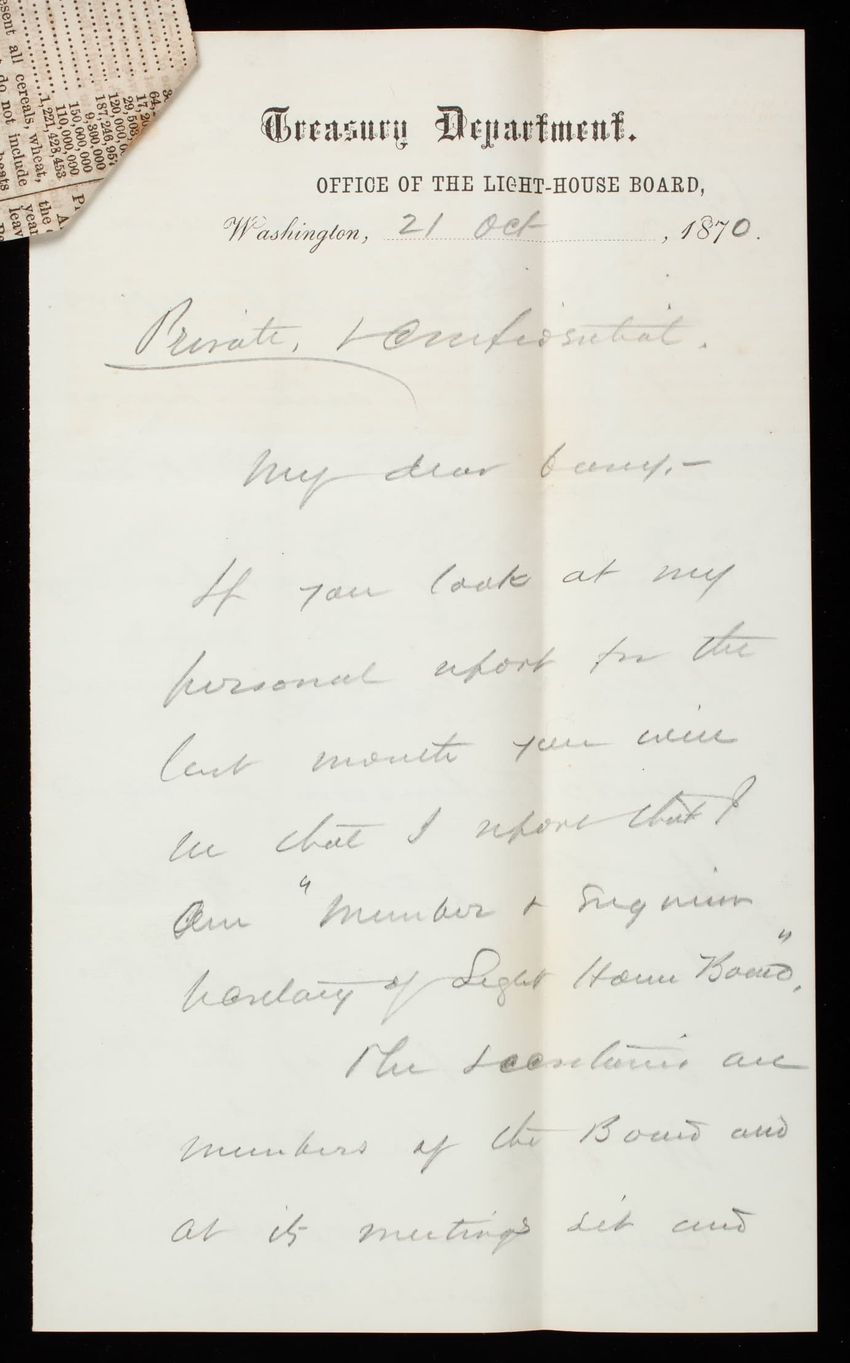 Treasury Department.
OFFICE OF THE LIGHT-HOUSE BOARD,
Washington, 21 Oct, 1870.
Private, & Confidential.
My dear Casey,-
If you look at my
personal report for the
last month you will
see that I report that I
am "Member & Engineer
Secretary of Light House Board",
The secretaries are
members of the Board and
at its meetings sit and
esent all cereals, wheat,
do not include the
1,221,428,453
110,000,000
150,000,000
9,300,000
187,245,957
120,000,0
29,503,
17,20
64,